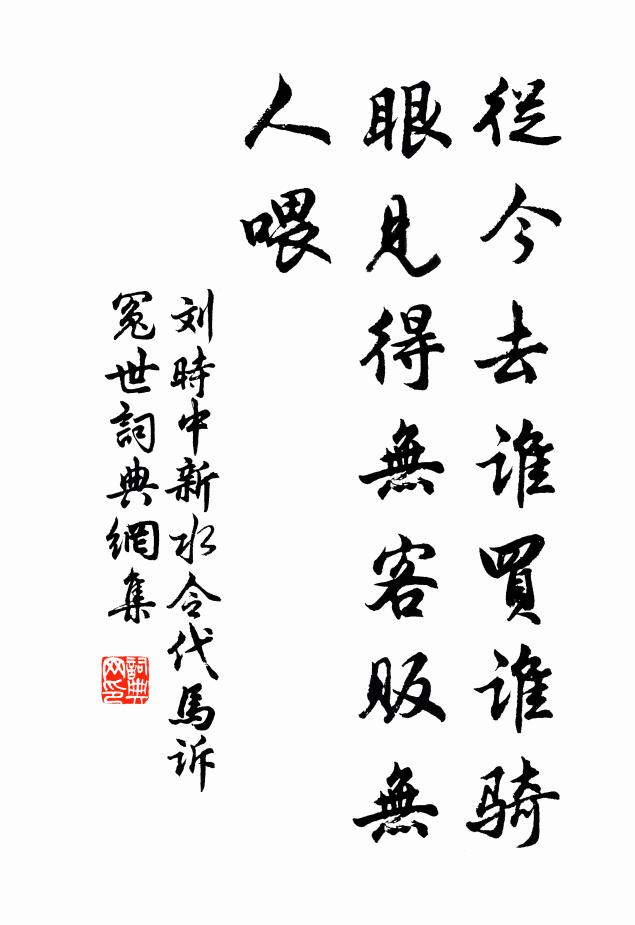 從今去誰買誰骑
眼見得無客販無
人喂
刘時中新水令代馬诉
冤世詞典網集
詞典网印